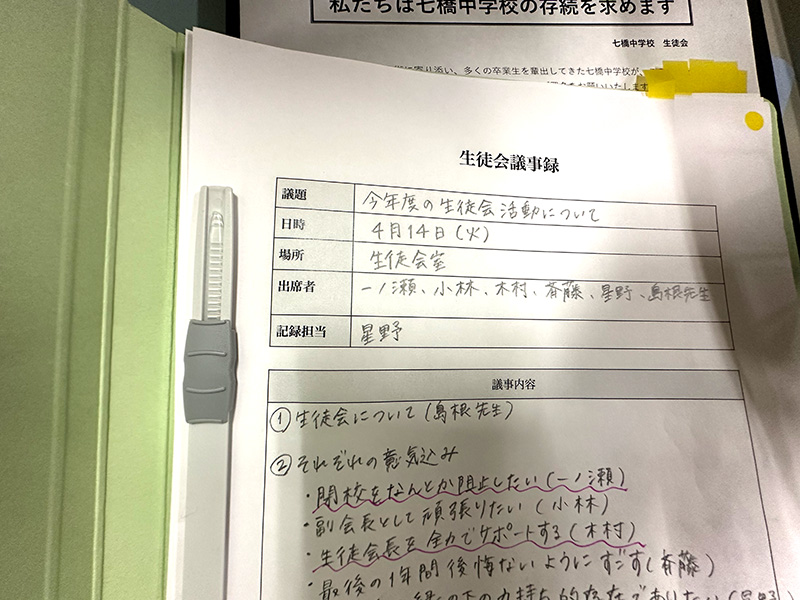 私たちは七橋中学校の存続を求めます
七橋中学校 生徒会
り添い、多くの卒業生を輩出してきた七橋中学校が、
生徒会議事録
議題 今年度の生徒会活動について
日時 4月14日(火)
場所 生徒会室
出席者 一ノ瀬、小林、木村、斉藤、星野、島根先生
記録担当 星野
議事内容
① 生徒会について(島根先生)
② それぞれの意気込み
・閉校をなんとか阻止したい(一ノ瀬)
・副会長として頑張りたい(小林)
・生徒会長を全力でサポートする(木村)
・最後の1年間後悔ないようにすごす(斉藤)
縁の下の力持ち的存在でありたい(星野)